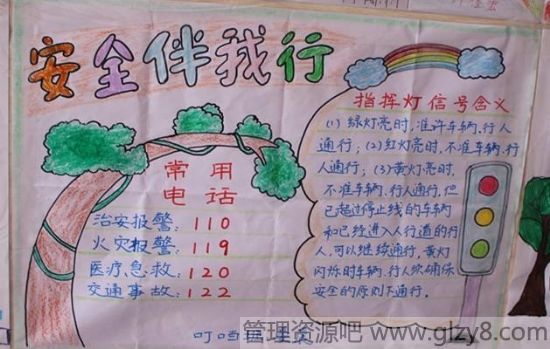 安全伴我行
常用
电话
治安报警：110
火灾报警：119
医疗急救：120
交通事故：122
指挥灯信号含义
(1)绿灯亮时，准许车辆、行人
通行；(2)红灯亮时，不准车辆、行
人通行；(3)黄灯亮时，
不准车辆、行人通行，但
已超过停止线的车辆
和已经进入人行道的行
人，可以继续通行，黄灯
闪烁时车辆、行人须确保
安全的原则下通行。
叮当
管理资源吧 www.glzy8.com